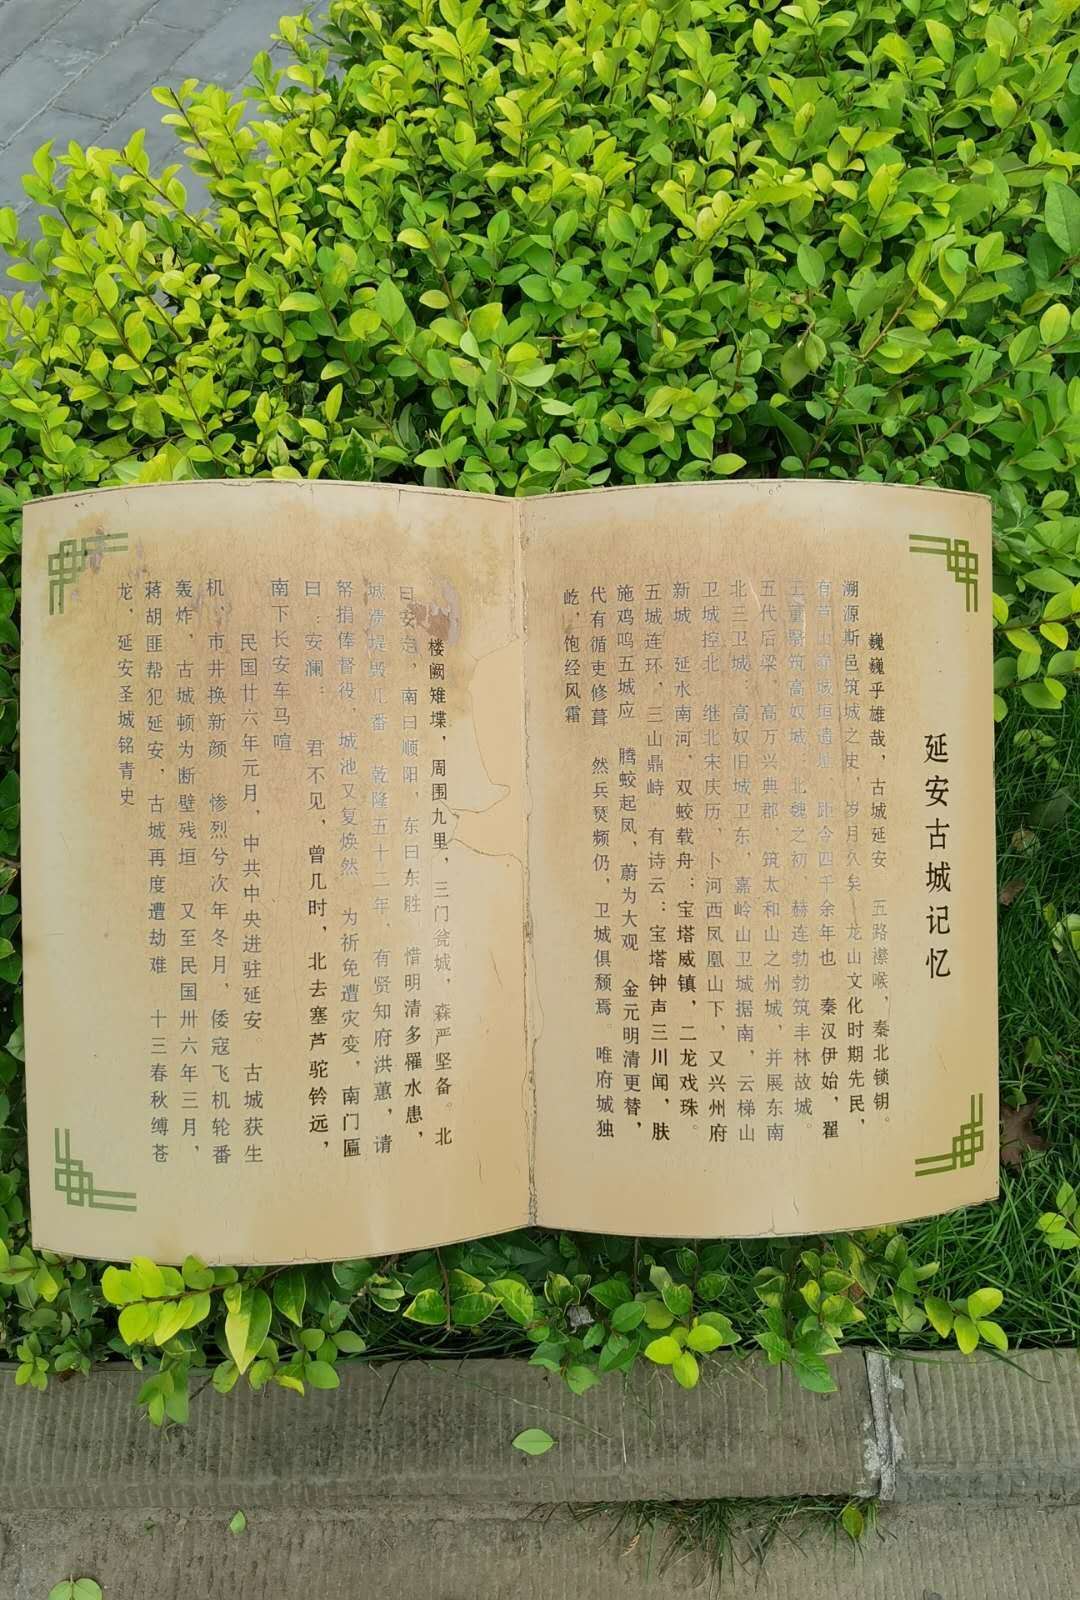 延安古城记忆
巍巍乎雄哉，古城延安 五路襟喉，秦北锁钥。
溯源斯邑筑城之史，岁月久矣 龙山文化时期先民，
有芦山峁城垣遗址 距今四千余年也 秦汉伊始，翟
王董翳筑高奴城；北魏之初，赫连勃勃筑丰林故城。
五代后梁，高万兴典郡，筑太和山之州城，并展东南
北三卫城；高奴旧城卫东，嘉岭山卫城据南，云梯山
卫城控北 继北宋庆历，卜河西凤凰山下，又兴州府
新城 延水南河，双蛟载舟；宝塔威镇，二龙戏珠。
五城连环，三山鼎峙 有诗云：宝塔钟声三川闻，肤
施鸡鸣五城应 腾蛟起凤，蔚为大观 金元明清更替，
代有循吏修葺 然兵燹频仍，卫城俱颓焉。唯府城独
屹，饱经风霜
楼阙雉堞，周围九里，三门瓮城，森严坚备。北
曰安定，南曰顺阳，东曰东胜 惜明清多罹水患，
城溃堤毁几番 乾隆五十二年，有贤知府洪蕙，请
帑捐俸督役，城池又复焕然 为祈免遭灾变，南门匾
曰：安澜； 君不见，曾几时，北去塞芦驼铃远，
南下长安车马喧
民国廿六年元月，中共中央进驻延安。古城获生
机，市井换新颜 惨烈兮次年冬月，倭寇飞机轮番
轰炸，古城顿为断壁残垣 又至民国卅六年三月，
蒋胡匪帮犯延安，古城再度遭劫难 十三春秋缚苍
龙，延安圣城铭青史